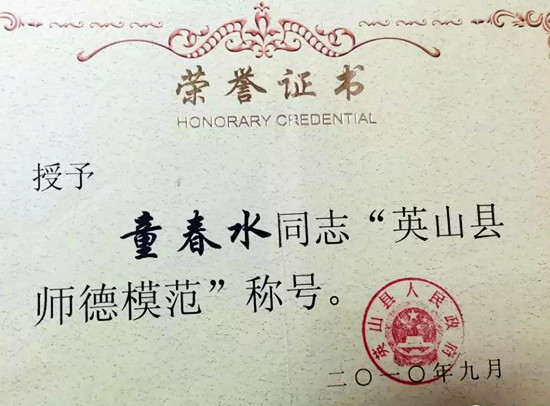 荣誉证书
HONORARY CREDENTIAL
授予
童春水同志“英山县
师德模范”称号。
英山县人民政府
二〇一〇年九月